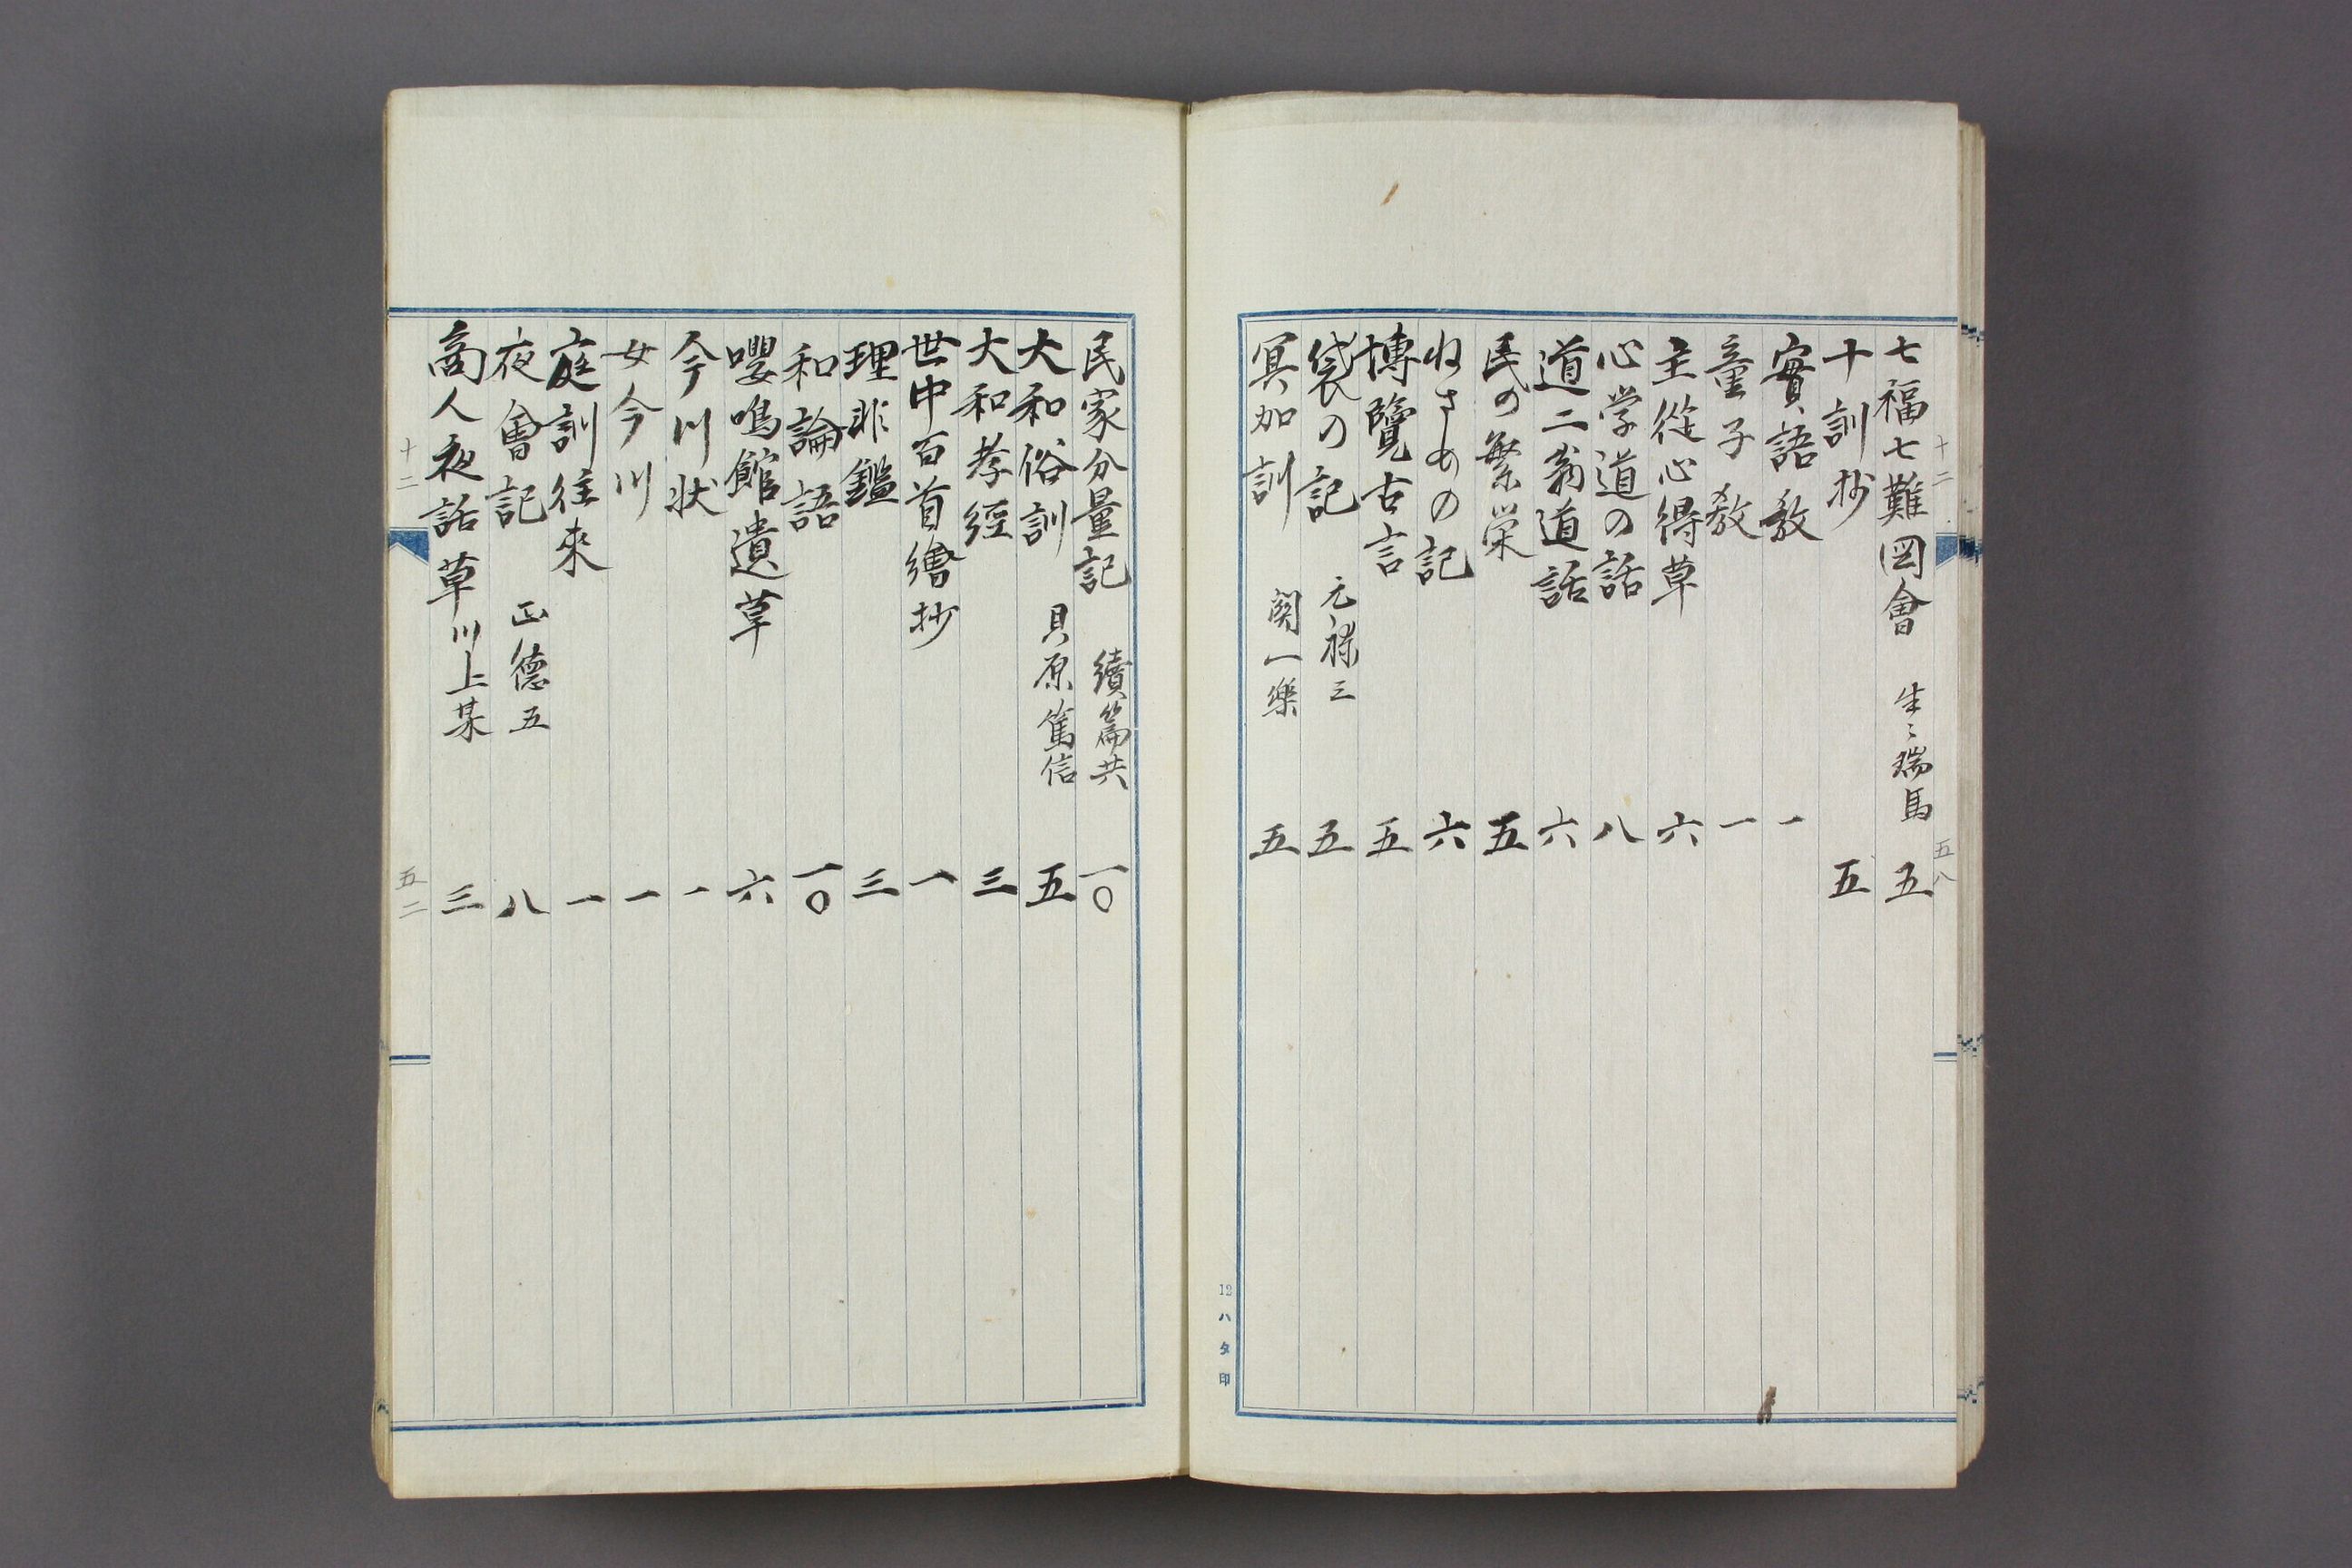 七福七難図會 生々瑞馬 五
十訓抄 五
實語教 一
童子教 一
主從心得草 六
心学道の話 八
道二翁道話 六
民の繁栄 五
ねさめの記 六
博覽古言 五
袋の記 元禄三 五
冥加訓 関一樂 五
12ハタ印
十二
五八
民家分量記 續篇共 一〇
大和俗訓 貝原篤信 五
大和孝經 三
世中百首繪抄 一
理非鑑 三
和論語 一〇
嚶鳴館遺草 六
今川状 一
女今川 一
庭訓往來 一
夜會記 正德五 八
商人夜話草 川上某 三
十二
五二